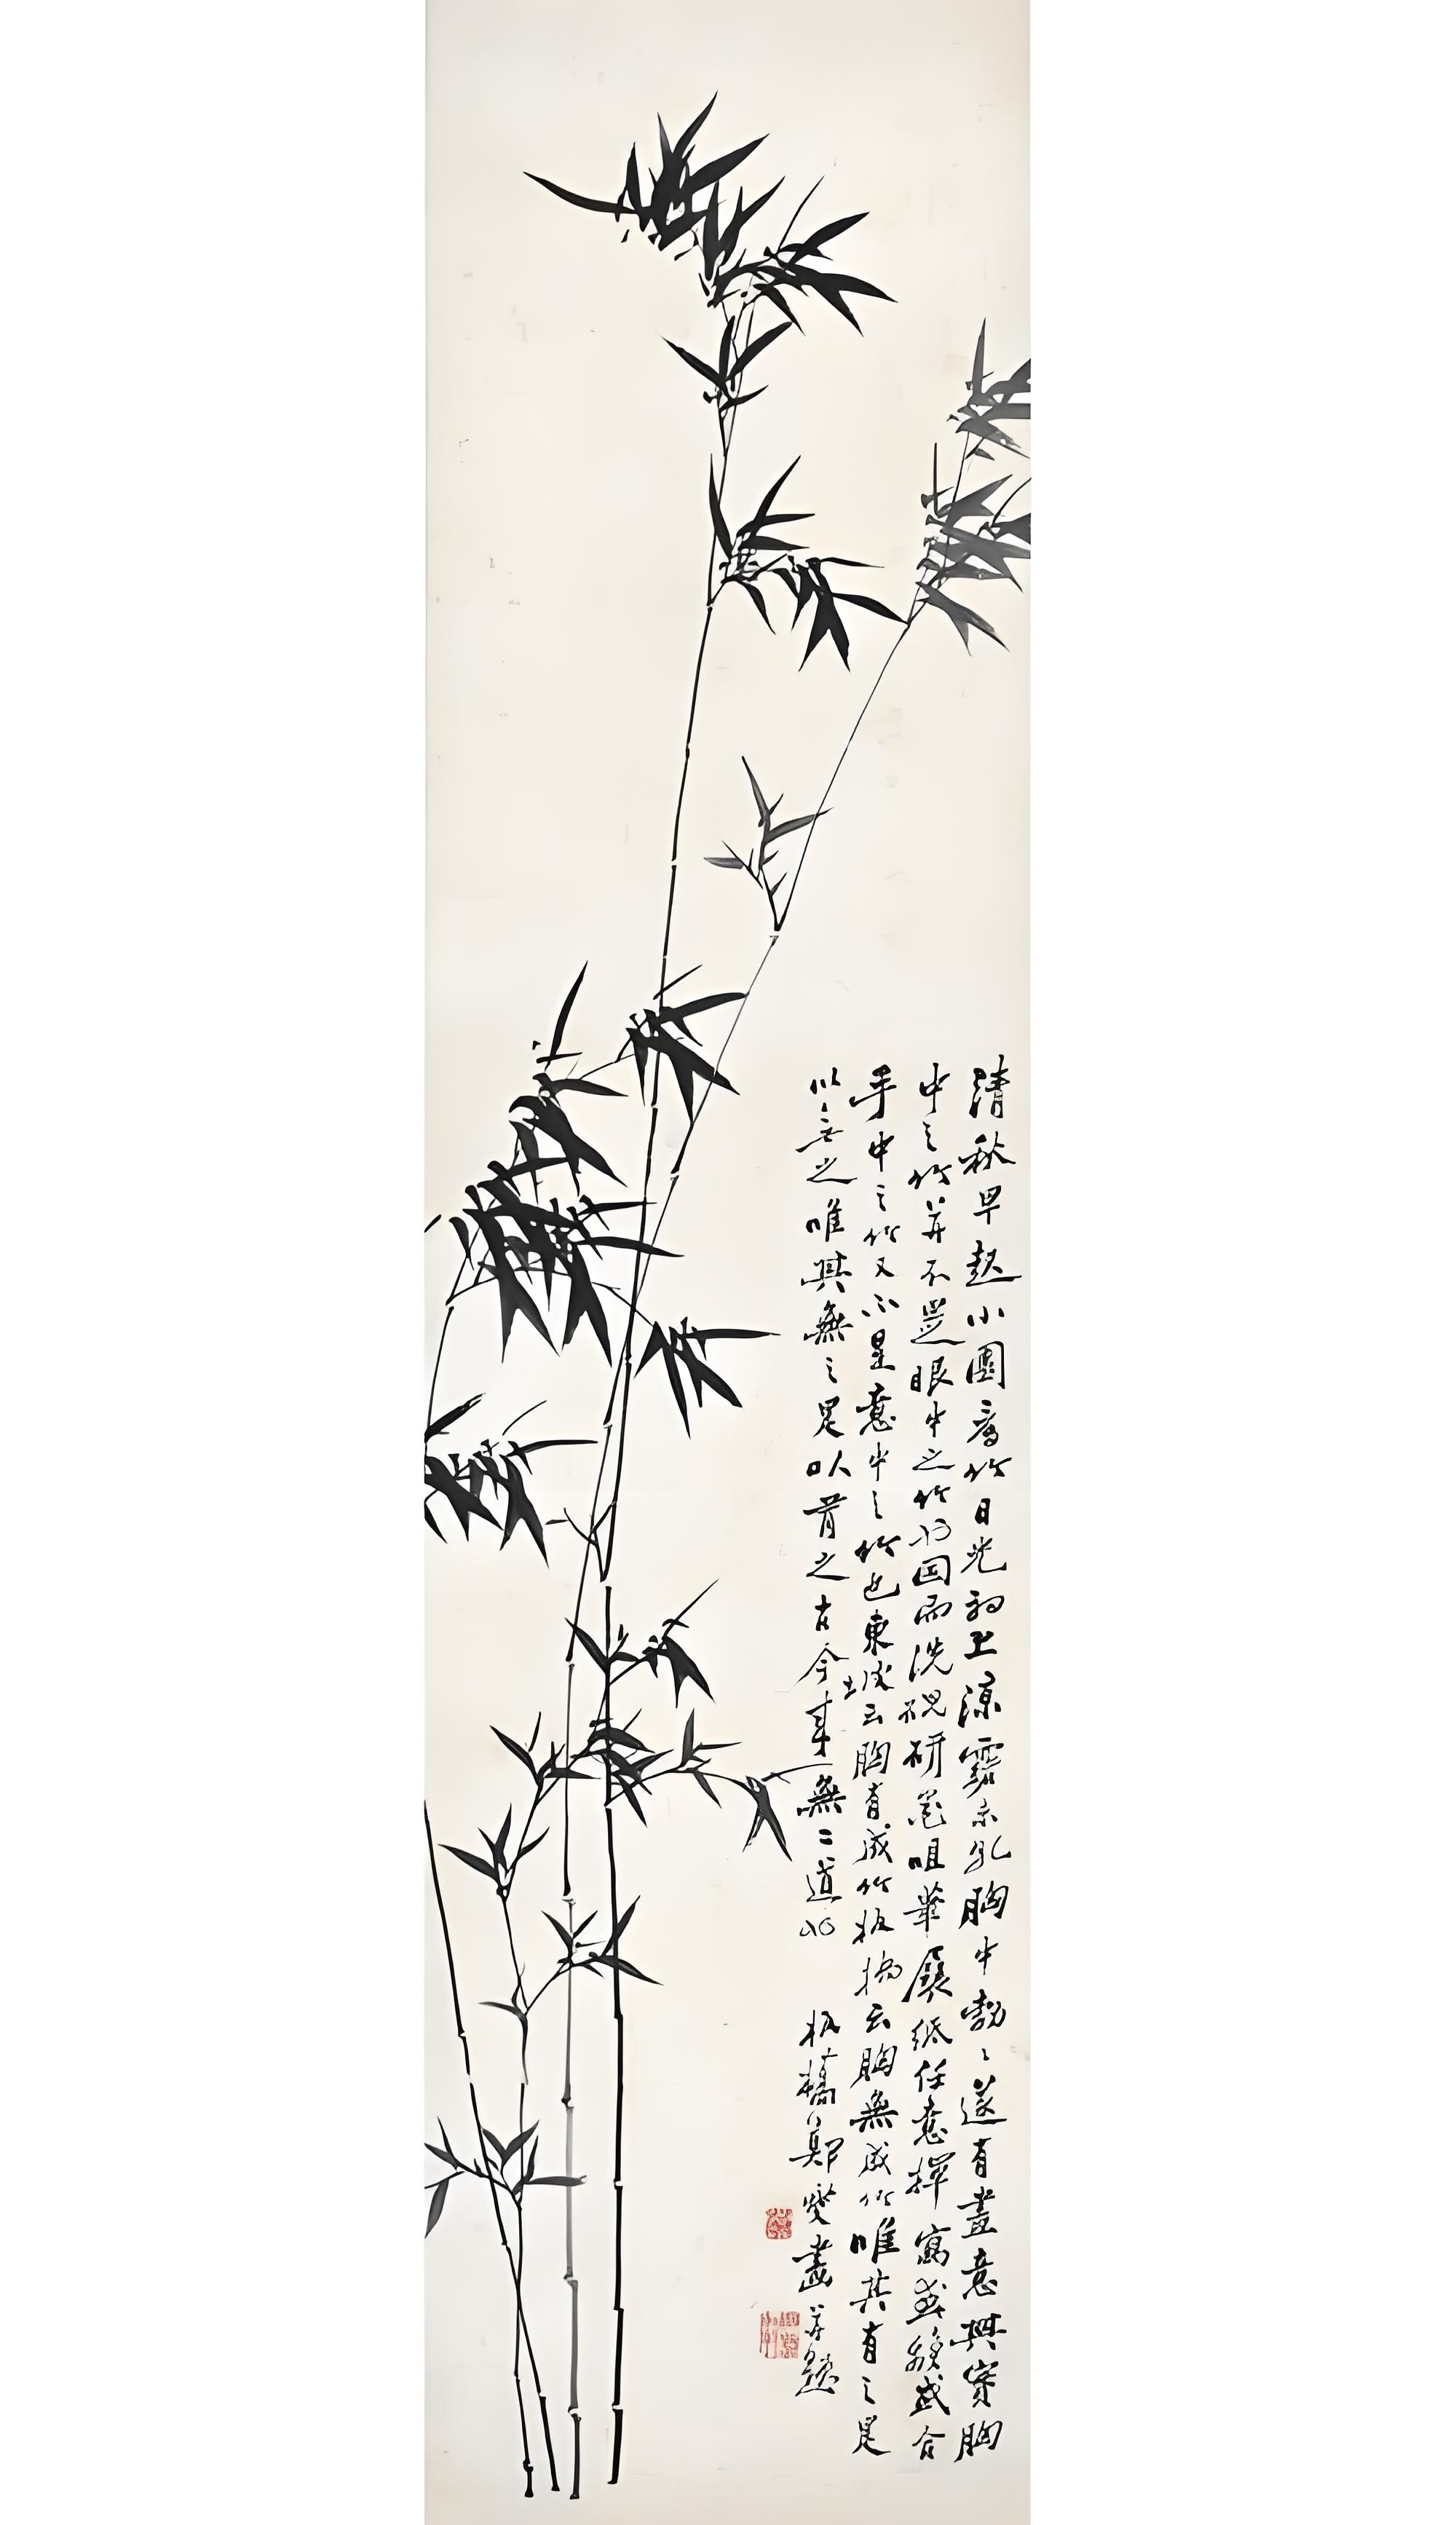 清秋早起小園看竹日光初上涼露未乳胸中勃〻遂有畫意興實胸
中之竹并不是眼中之竹也因而洗硯研墨咀華展紙任意揮寫或離或合
手中之竹又不是意中之竹也東坡云胸有成竹板橋云胸無成竹唯其有之是
以無之唯其無之是以有之古今來無二道也 板橋鄭燮畫并題